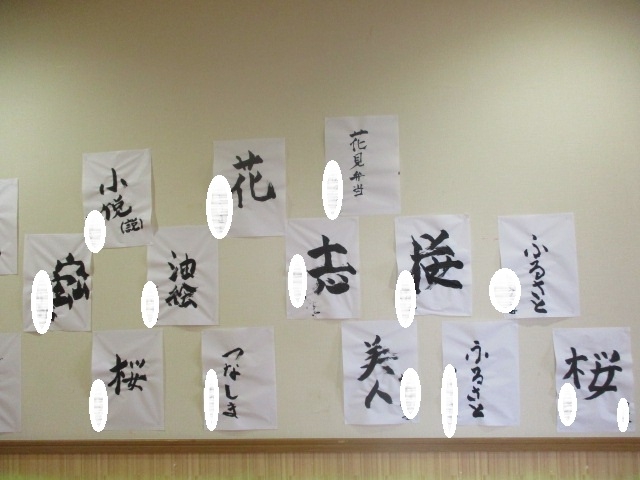 花見弁当
花
小悦
(説)
ふるさと
桜
志
油
絵
桜
ふるさと
美
人
つなしま
桜